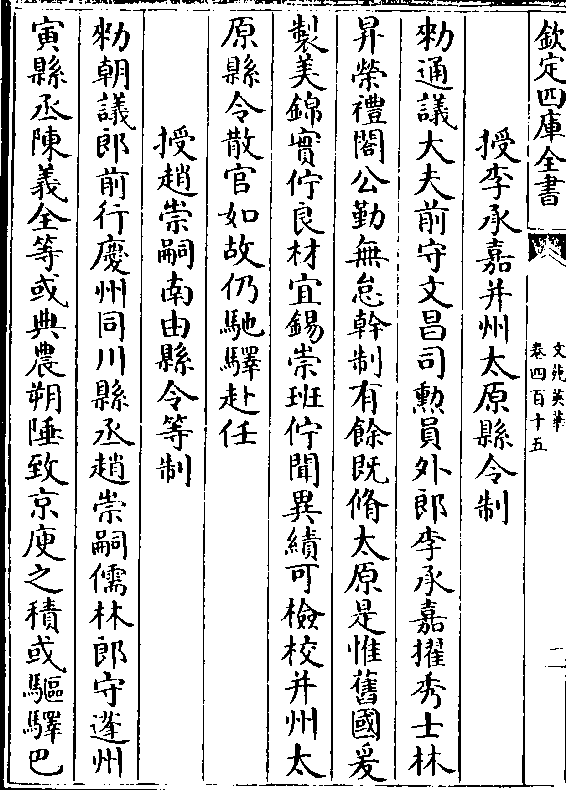 欽定四庫全書
文苑英華
卷四百十五
二
授李承嘉并州太原縣令制
勅通議大夫前守文昌司勲員外郎李承嘉擢秀士林
昇榮禮閣公勤無怠幹制有餘既脩太原是惟舊國爰
製美錦實佇良材宜錫崇班佇聞異績可檢校并州太
原縣令散官如故仍馳驛赴任
授趙崇嗣南由縣令等制
勅朝議郎前行慶州同川縣丞趙崇嗣儒林郎守蓬州
寅縣丞陳義全等或典農朔陲致京庾之積或驅驛巴